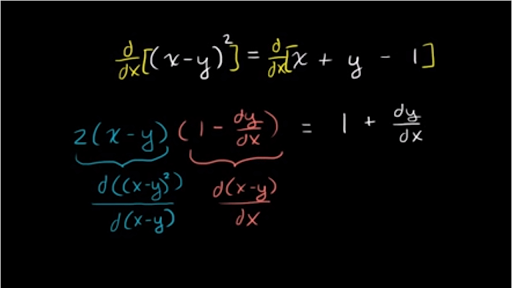 d/dx[(x-y)²] = d/dx[x + y - 1]
2(x-y)(1 - dy/dx) = 1 + dy/dx
d((x-y)²)/d(x-y) d(x-y)/dx